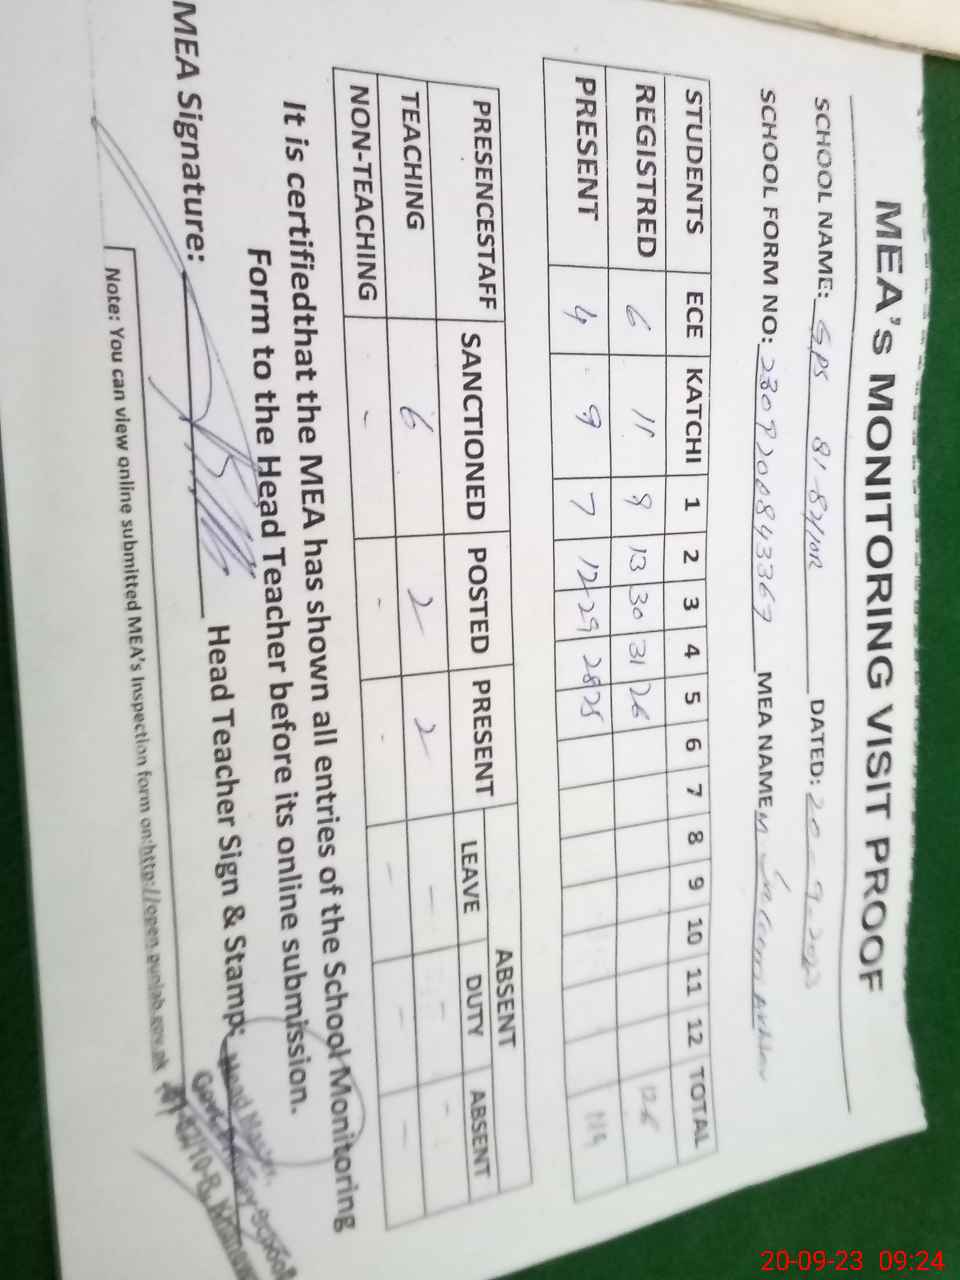 MEA's MONITORING VISIT PROOF
SCHOOL NAME: GPS 81-82/10R DATED: 20-9-2023
SCHOOL FORM NO: MEA NAME M
STUDENTS ECE KATCHI 1 2 3 4 5 6 7 8 9 10 11 12 TOTAL
REGISTRED 6 11 9 13 30 31 26 126
PRESENT 4 9 7 12 29 28 25
PRESENCESTAFF SANCTIONED POSTED PRESENT ABSENT
LEAVE DUTY ABSENT
TEACHING 6 2 2 - - -
NON-TEACHING - - - - - -
It is certifiedthat the MEA has shown all entries of the School Monitoring
Form to the Head Teacher before its online submission.
MEA Signature: Head Teacher Sign & Stamp:
Head Master,
Govt. Primary School
81-82/10-R
Note: You can view online submitted MEA's Inspection form on:http://open.punjab.gov.pk
20-09-23 09:24